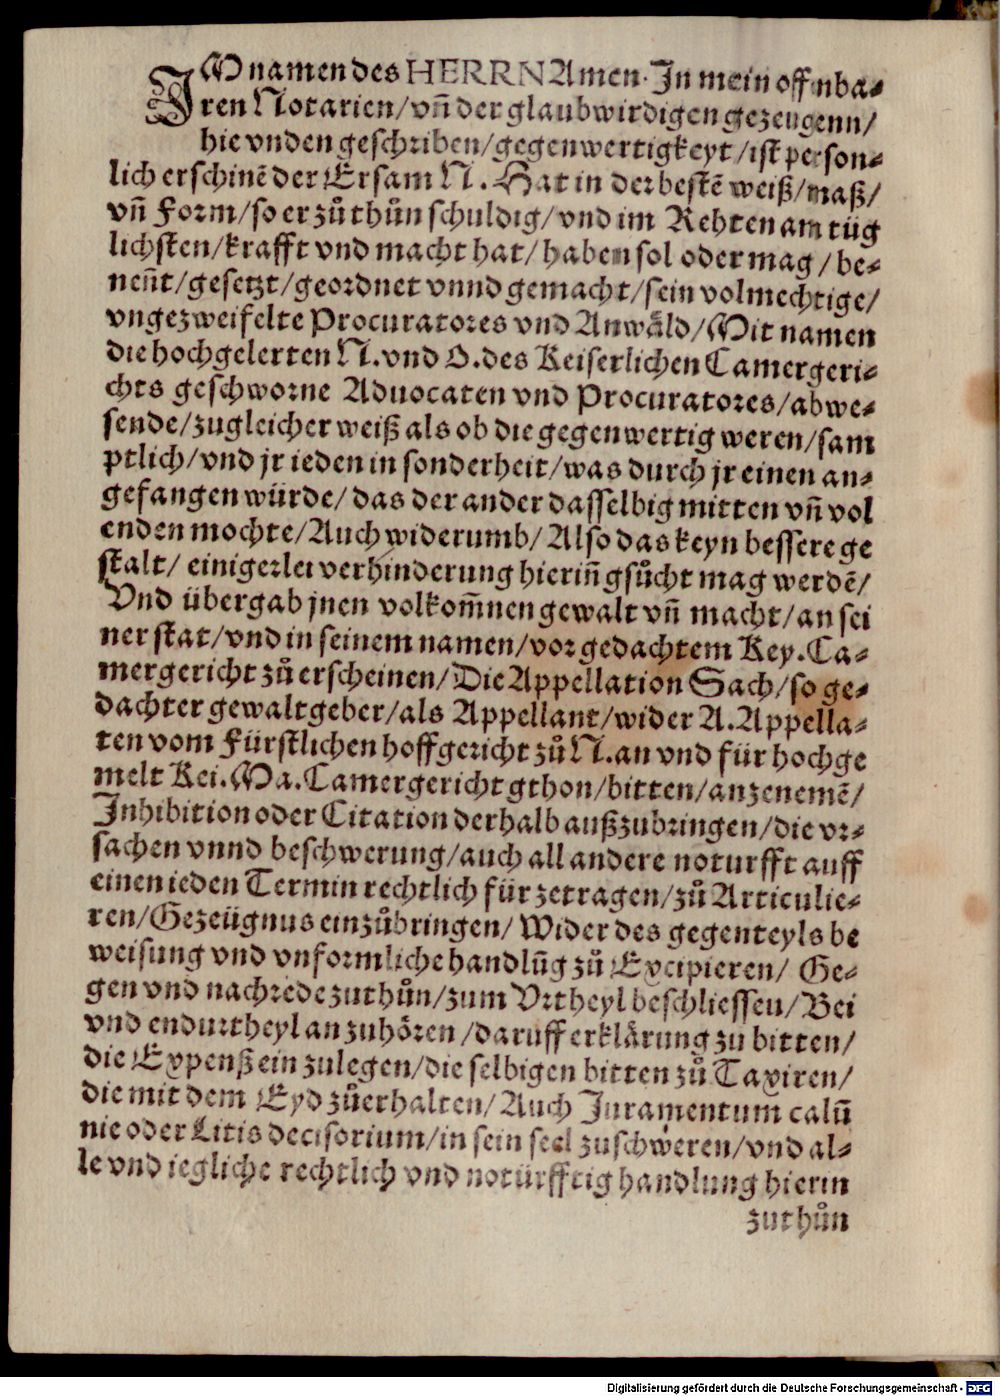 IM namen des HERRN Amen. In mein offnba-
ren Notarien/vñ der glaubwirdigen gezeugenn/
hie vnden geschriben/gegenwertigkeyt/ist person-
lich erschinẽ der Ersam N. Hat in der bestẽ weiß/maß/
vñ Form/so er zů thůn schuldig/vnd im Rehten am tüg
lichsten/krafft vnd macht hat/haben sol oder mag/be-
neñt/gesetzt/geordnet vnnd gemacht/sein volmechtige/
vngezweifelte Procuratores vnd Anwäld/Mit namen
die hochgelerten N. vnd O. des Keiserlichen Camergeri-
chts geschworne Aduocaten vnd Procuratores/abwe-
sende/zugleicher weiß als ob die gegenwertig weren/sam
ptlich/vnd jr ieden in sonderheit/was durch jr einen an-
gefangen würde/das der ander dasselbig mitten vñ vol
enden mochte/Auch widerumb/Also das keyn bessere ge
stalt/ einigerlei verhinderung hieriñ gsůcht mag werdẽ/
Vnd übergab jnen volkom̃nen gewalt vñ macht/an sei
ner stat/vnd in seinem namen/vor gedachtem Key. Ca-
mergericht zů erscheinen/Die Appellation Sach/so ge-
dachter gewaltgeber/als Appellant/wider A. Appella-
ten vom Fürstlichen hoffgericht zů N. an vnd für hochge
melt Kei. Ma. Camergericht gthon/bitten/anzenemẽ/
Inhibition oder Citation derhalb außzubringen/die vr-
sachen vnnd beschwerung/auch all andere noturfft auff
einen ieden Termin rechtlich für zetragen/zů Articulie-
ren/Gezeügnus einzůbringen/Wider des gegenteyls be
weisung vnd vnformliche handlũg zů Excipieren/ Ge-
gen vnd nachrede zuthůn/zum Vrtheyl beschliessen/Bei
vnd endurtheyl an zuhören/daruff erklärung zu bitten/
die Expenß ein zulegen/die selbigen bitten zů Taxiren/
die mit dem Eyd zůerhalten/Auch Juramentum calũ
nie oder Litis decisorium/in sein seel zuschweren/vnd al-
le vnd iegliche rechtlich vnd notürfftig handlung hierin
zuthůn
Digitalisierung gefördert durch die Deutsche Forschungsgemeinschaft - DFG